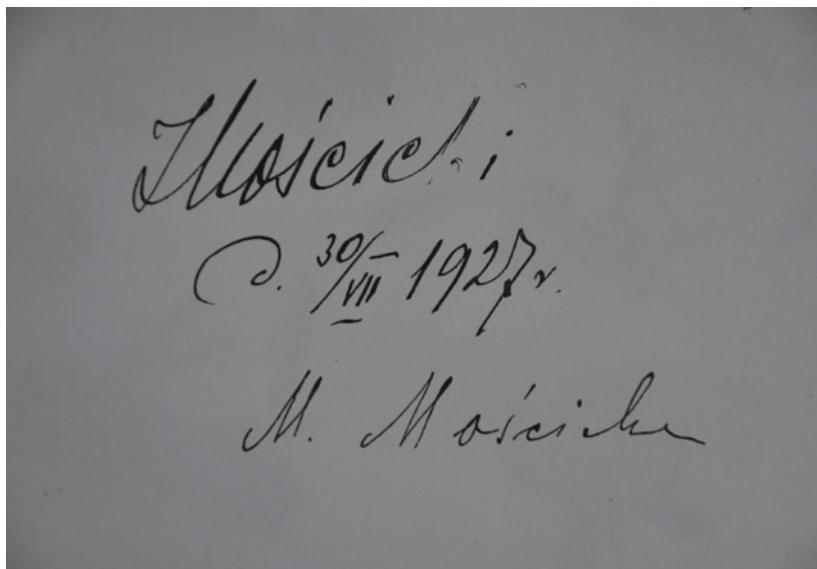 IMościcki
d. 30/VII 1927 r.
M. Mościcka